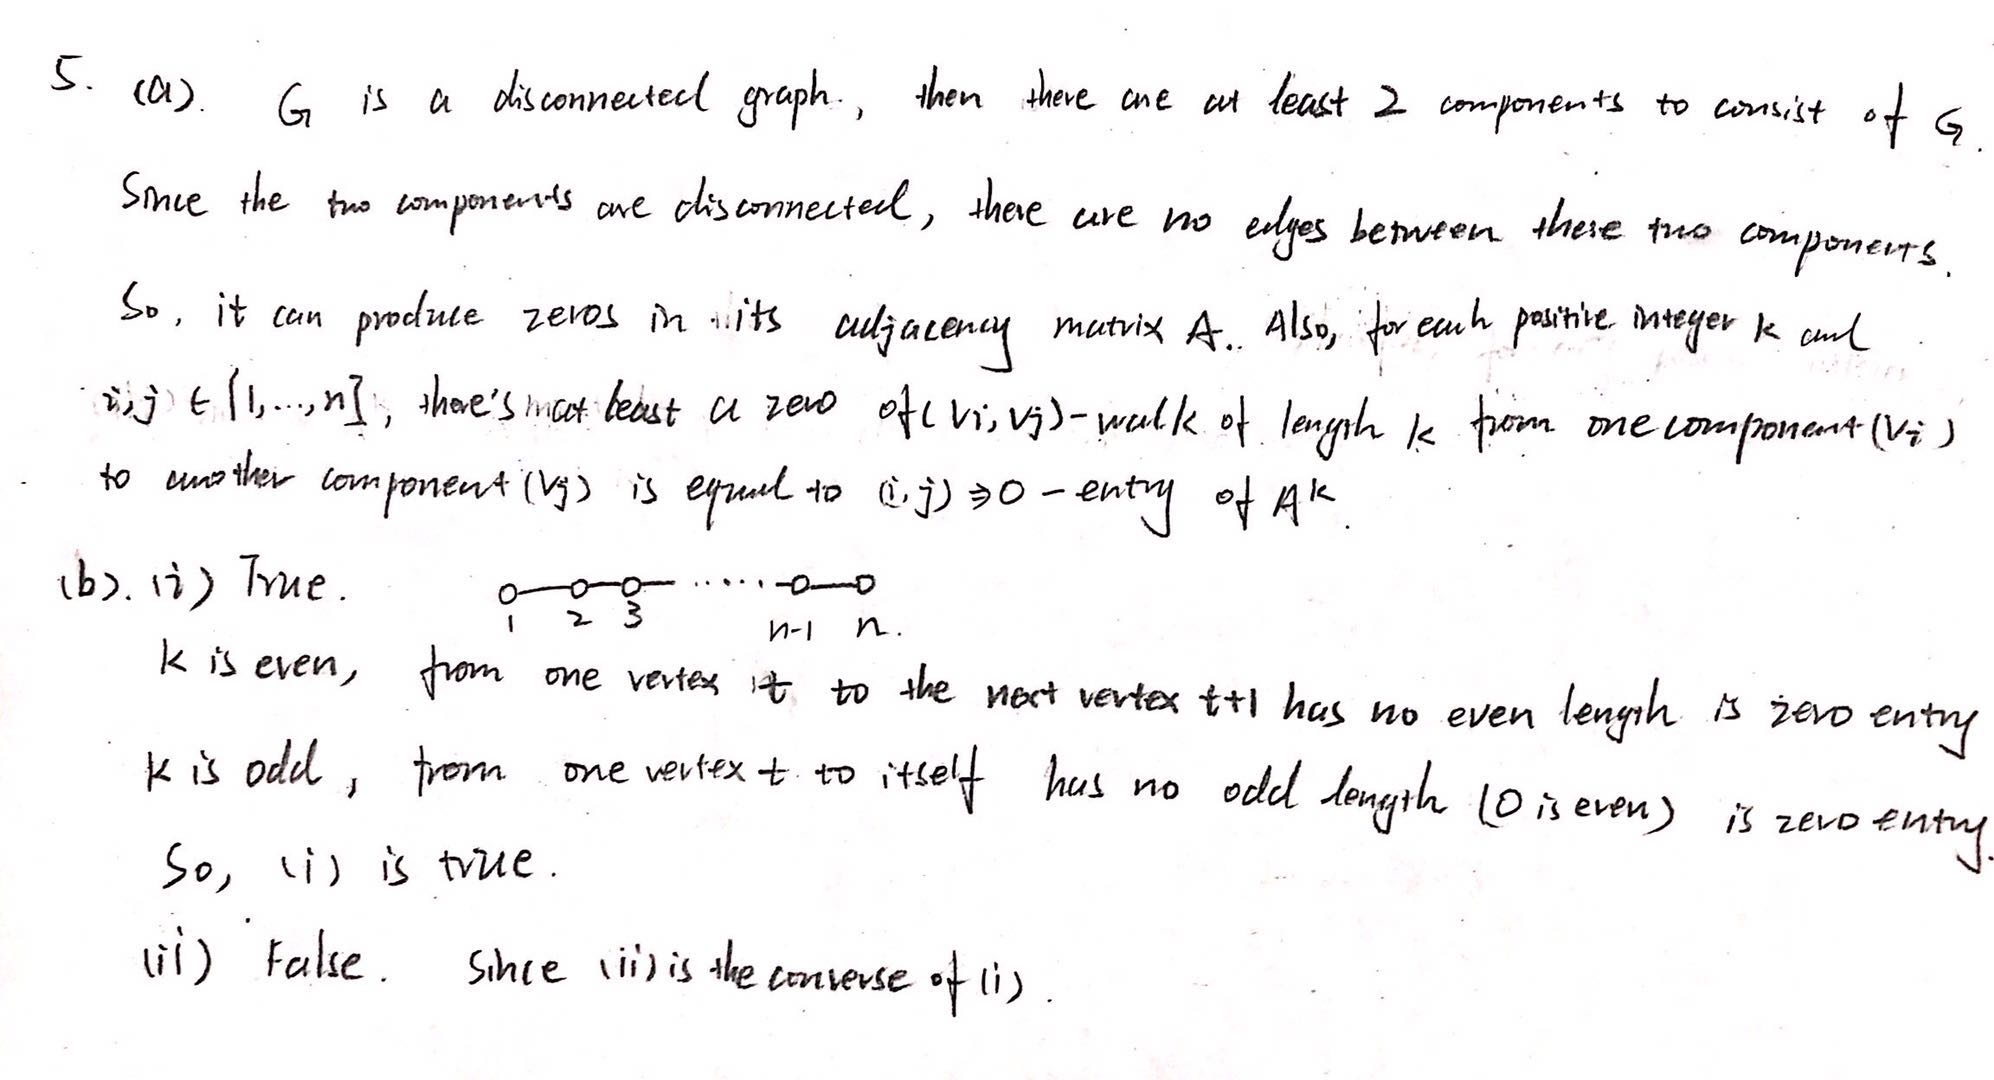 5. (a). G is a disconnected graph., then there are at least 2 components to consist of G.
Since the two components are disconnected, there are no edges between these two components.
So, it can produce zeros in its adjacency matrix A. Also, for each positive integer k and
i,j ∈ {1,...,n}, there's at least a zero of (vi, vj)-walk of length k from one component (vi)
to another component (vj) is equal to (i,j) ⇒ 0 - entry of A^k.
(b). (i) True.
1 2 3 ..... n-1 n.
k is even, from one vertex t to the next vertex t+1 has no even length is zero entry
k is odd, from one vertex t to itself has no odd length (0 is even) is zero entry.
So, (i) is true.
(ii) False. Since (ii) is the converse of (i).